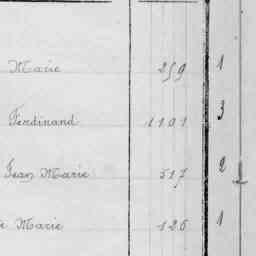 Marie 259 1
Ferdinand 1101 3
Jean Marie 517 2
Marie 126 1